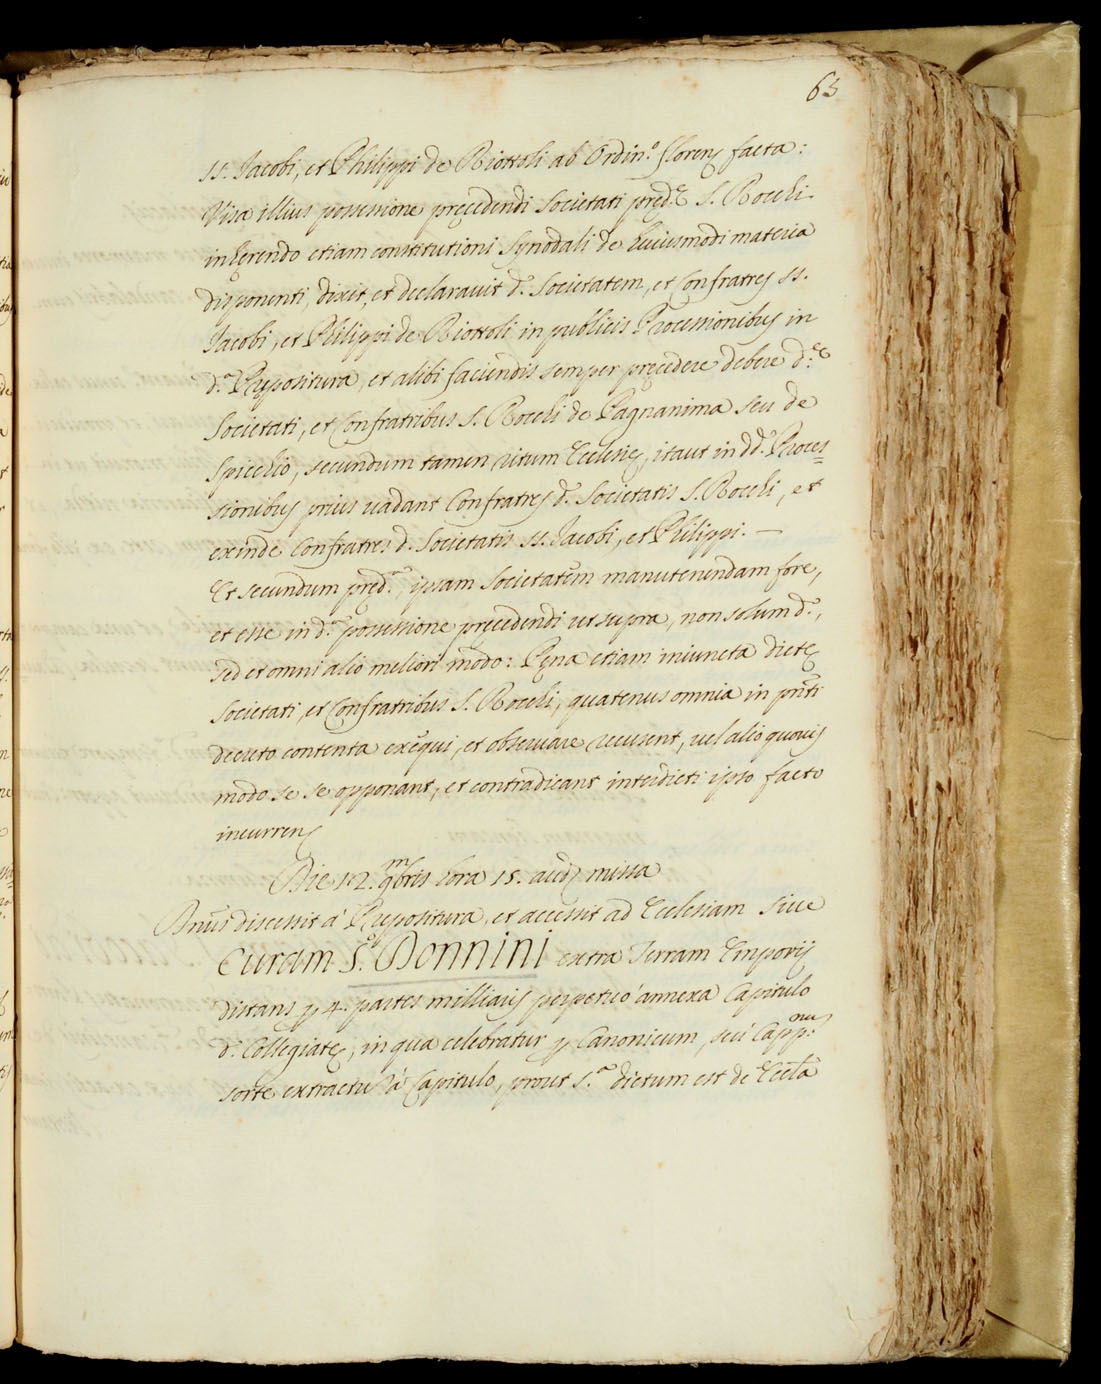 63
SS. Jacobi, et Philippi de Riottoli ab Ordin.º floren; facta:
Visa illius possessione precedendi Societati pred.ę S. Rochi
inherendo etiam constitutioni Synodali de huiusmodi materia
disponenti, dixit, et declarauit d.ª Societatem, et Confratres SS.
Jacobi, et Philippi de Riottoli in publicis Processionibus in
d.ª Prępositura, et alibi faciendis semper pręcedere debere d.ę
Societati, et Confratribus S. Rochi de Pagnanima seu de
Spicchio, secundum tamen ritum Ecclesię, itaut in dd.º Proces=
sionibus prius uadant Confratres d.ª Societatis S. Rochi, et
exinde Confratres d. Societatis SS. Jacobi, et Philippi. —
Et secundum pręd.ª, ipsam Societatem manutenendam fore,
et esse in d.ª possessione pręcedendi ut supra, non solum d.º,
sed et omni alio meliori modo: Pęna etiam iniuncta dictę
Societati, et Confratribus S. Rochi, quatenus omnia in pnti
decreto contenta exequi, et obseruare recusent, uel alio quouis
modo se se opponant, et contradicant interdicti ipso facto
incurren;
Die 12. mbris hora 15. aud; missa
Dnus discessit à Prępositura, et accessit ad Ecclesiam siue
Curam S.ti Donnini extra Terram Emporij
distans p 4. partes milliarij perpetuò annexa Capitulo
d.ª Collegiatę, in qua celebratur p Canonicum, seù Capp.num
sorte extractũ à Capitulo, prout s.ª dictum est de Eccla